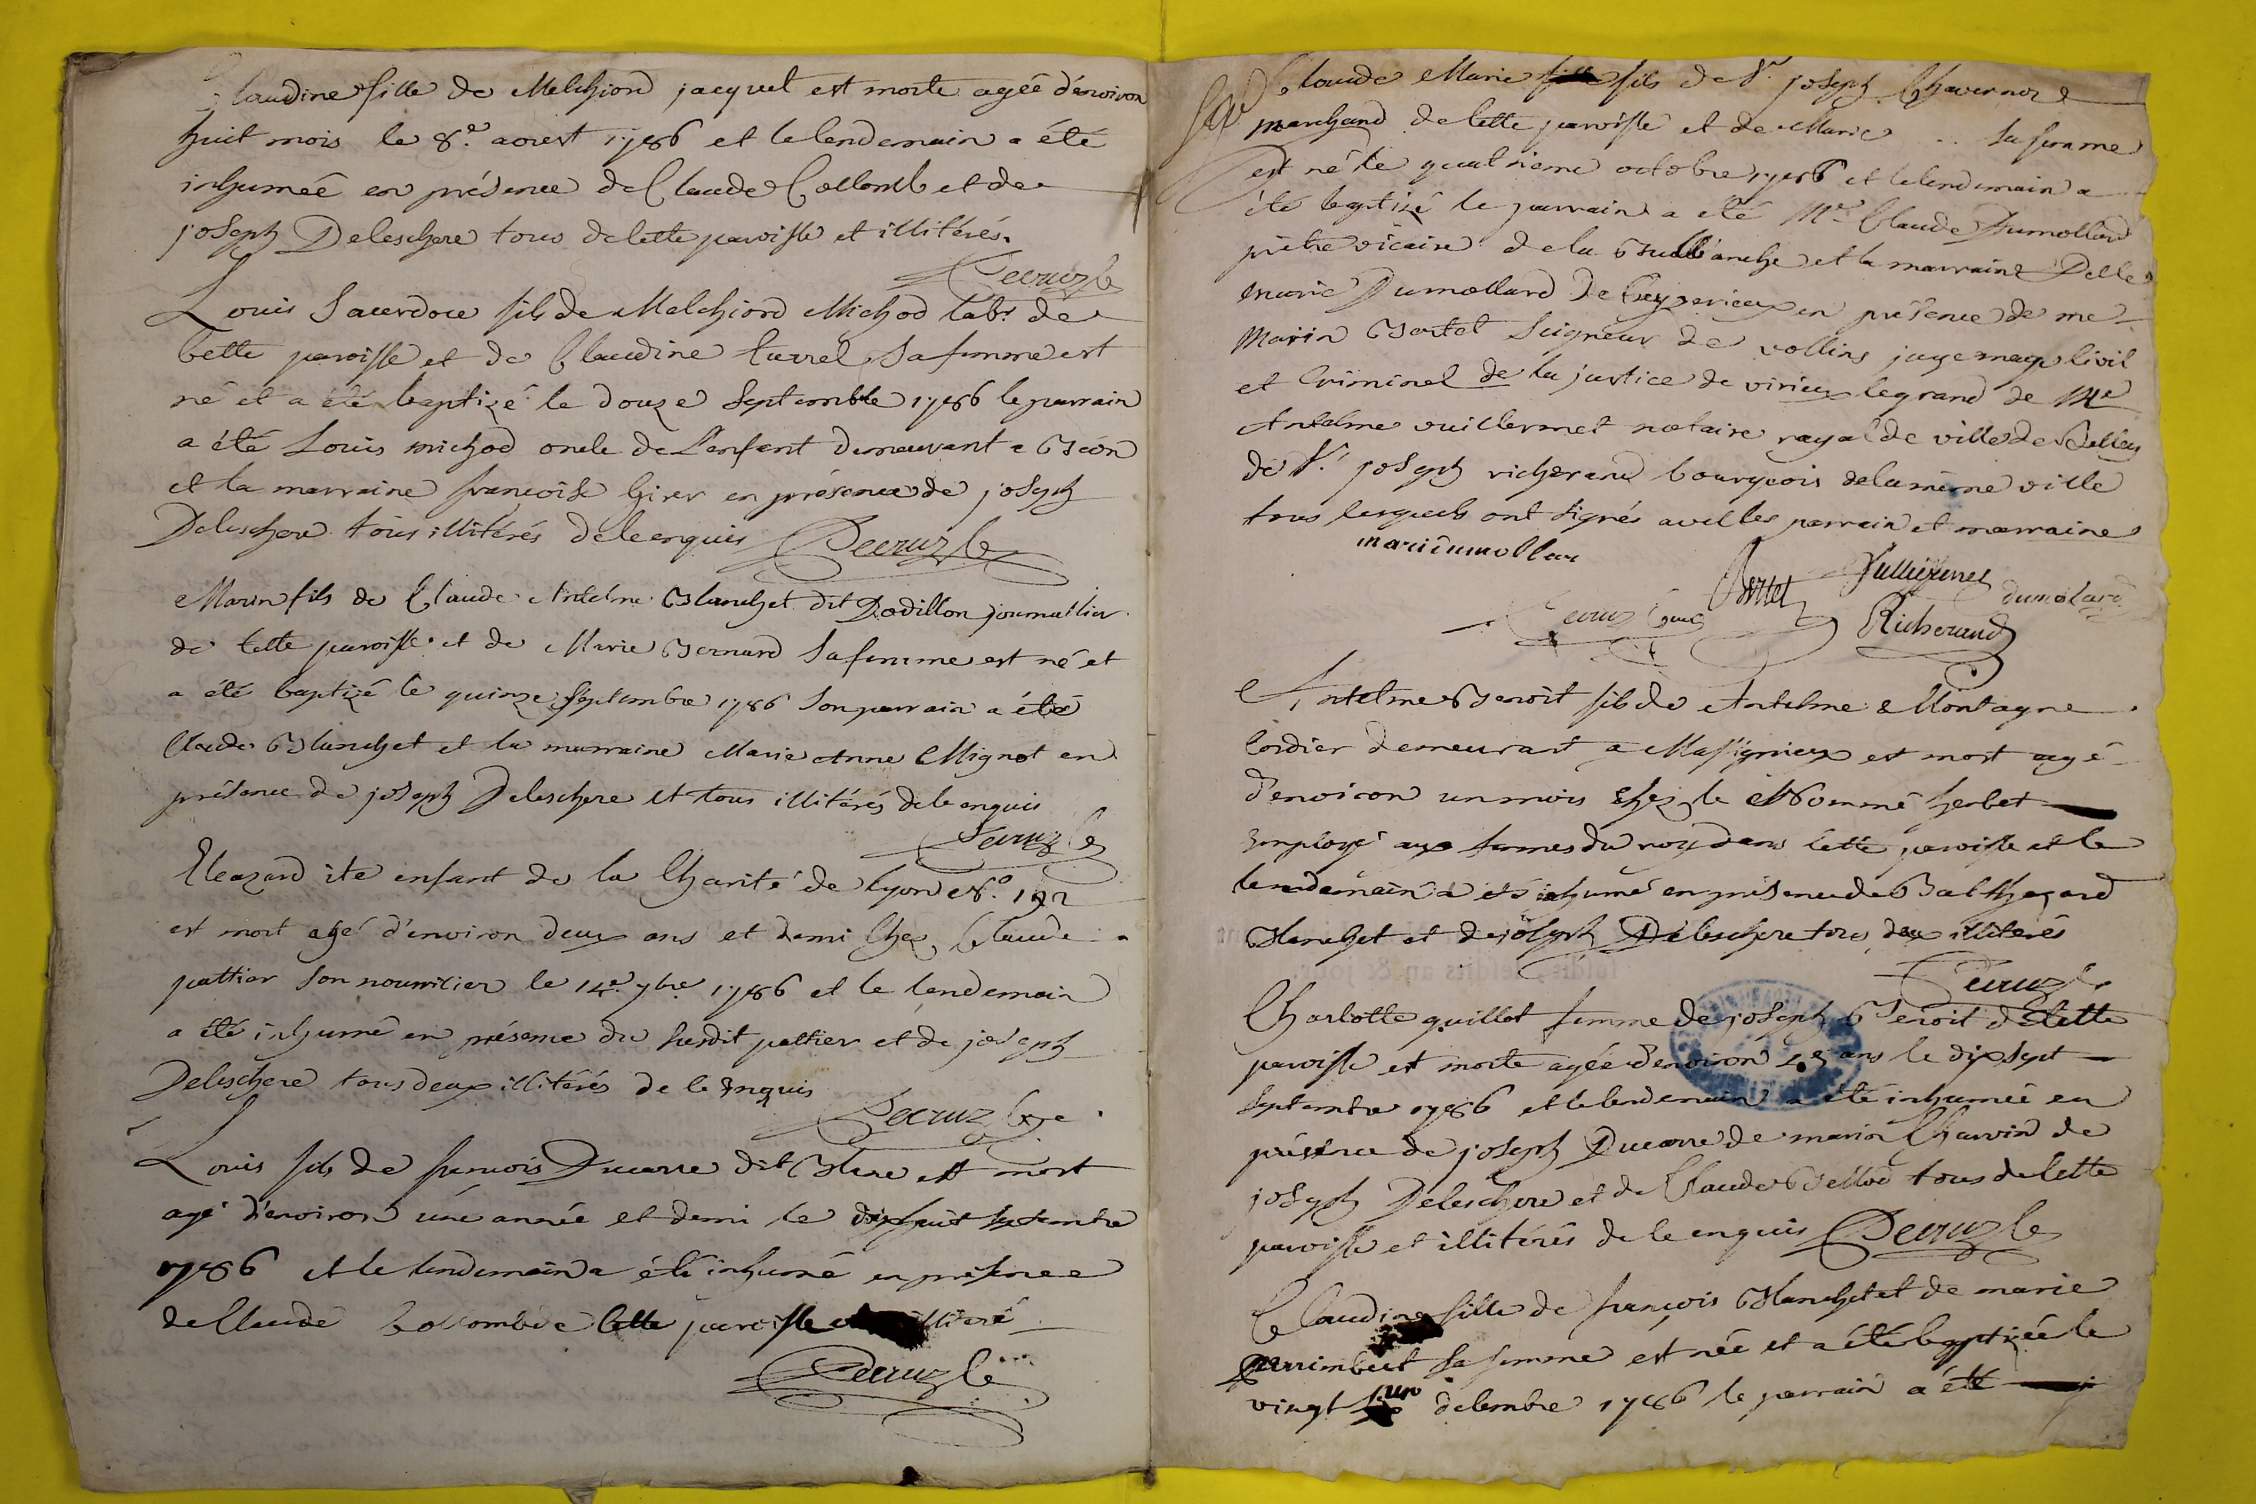 Claudine fille de Melchiord jacquet est morte agée d'environ
huit mois le 8e. aoust 1786 et le lendemain a été
inhumeé en présence de Claude Collomb et de
joseph Deleschere tous de cette paroisse et illitérés.
Decruz
Louis Sacerdoce fils de Melchiord Michod labr. de
cette paroisse et de Claudine Curvel sa femme est
né et a été baptizé le douze Septembre 1786 le parrain
a été Louis michod oncle de L'enfant demeurant a Béon
et la marraine françoise Girer en présence de joseph
Deleschere tous illitérés de ce enquis Decruz
Marin fils de Claude Antelme Blanchet dit Dodillon journallier
de cette paroisse et de Marie Bernard sa femme est né et
a été baptizé le quinze Septembre 1786 son parrain a été
Claude Blanchet et la marraine Marie Anne Mignot en
présence de joseph Deleschere et tous illitérés de ce enquis
Decruz
Eleazard ite enfant de la Charité de Lyon No. 192
est mort agé d'environ deux ans et demi Chez Claude
pattier son nourricier le 14e. 7bre. 1786 et le lendemain
a été inhumé en présence du susdit pattier et de joseph
Deleschere tous deux illitérés de ce Enquis
Decruz
Louis fils de françois Ducarre dit Blanc est mort
agé d'environ une année et demi le dixhuit septembre
1786 et le lendemain a été inhumé en présence
de Claude Collomb de cette paroisse illitéré
Decruz
Claude Marie fils de Sr. joseph Chavernoz
marchand de cette paroisse et de Marie .. sa femme
est né le quatrieme octobre 1786 et le lendemain a
été baptizé le parrain a été Mre Claude Dumollard
prêtre vicaire de la Burbanche et la marraine Delle
marie Dumollard de Ceyzerieu en présence de me
Marin Bertet Seigneur de vollins juge mage Civil
et Criminel de la justice de virieu le grand de Me
Antelme vuillermet notaire royal de ville de Belley
de Sr. joseph richerand bourgeois de la même ville
tous lesquels ont signés avec les parrain et marraine
marie dumollar
Bertet Vulliermet dumolard
Decruz Curé Richerand
Antelme Benoit fils de Antelme Montagne
Cordier demeurant a Massignieux est mort agé
d'environ un mois chez le Nommé herbet
Employé aux fermes du roy dans cette paroisse et le
lendemain a été inhumé en présence de Balthezard
Blanchet et de joseph Deleschere tous deux illiterés
Decruz
Charlotte quillot femme de joseph Benoit de cette
paroisse est morte agée d'environ 45 ans le dix sept
septembre 1786 et le lendemain a été inhumée en
présence de joseph Ducarre de marin Charvin de
joseph Deleschere et de Claude Bellod tous de cette
paroisse et illitérés de ce enquis Decruz
Claudine fille de françois Blanchet et de marie
perrimbert sa femme est née et a été baptizée le
vingt un decembre 1786 le parrain a été